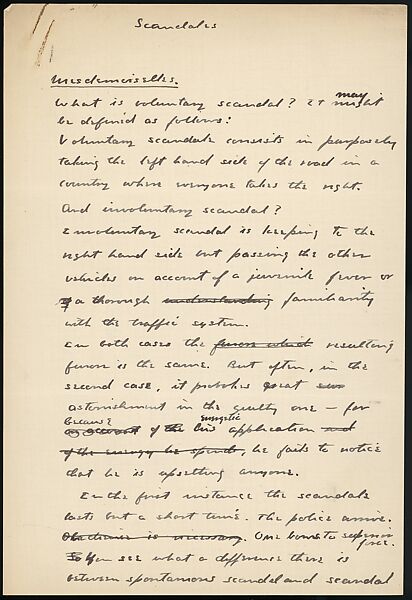 Scandales
Mesdemoiselles.
What is voluntary scandal? It might may
be defined as follows:
Voluntary scandale consists in purposely
taking the left hand side of the road in a
country where everyone takes the right.
And involuntary scandal?
Involuntary scandal is keeping to the
right hand side but passing the other
vehicles on account of a juvenile fever or
a thorough understanding familiarity
with the traffic system.
In both cases the furor which resulting
furor is the same. But often, in the
second case, it provokes great
astonishment in the guilty one – for
because energetic
on account of the his application and
of the energy he spends, he fails to notice
that he is upsetting anyone.
In the first instance the scandale
lasts but a short time. The police arrive.
is necessary. One bows to superior
force.
So you see what a difference there is
between spontaneous scandal and scandal